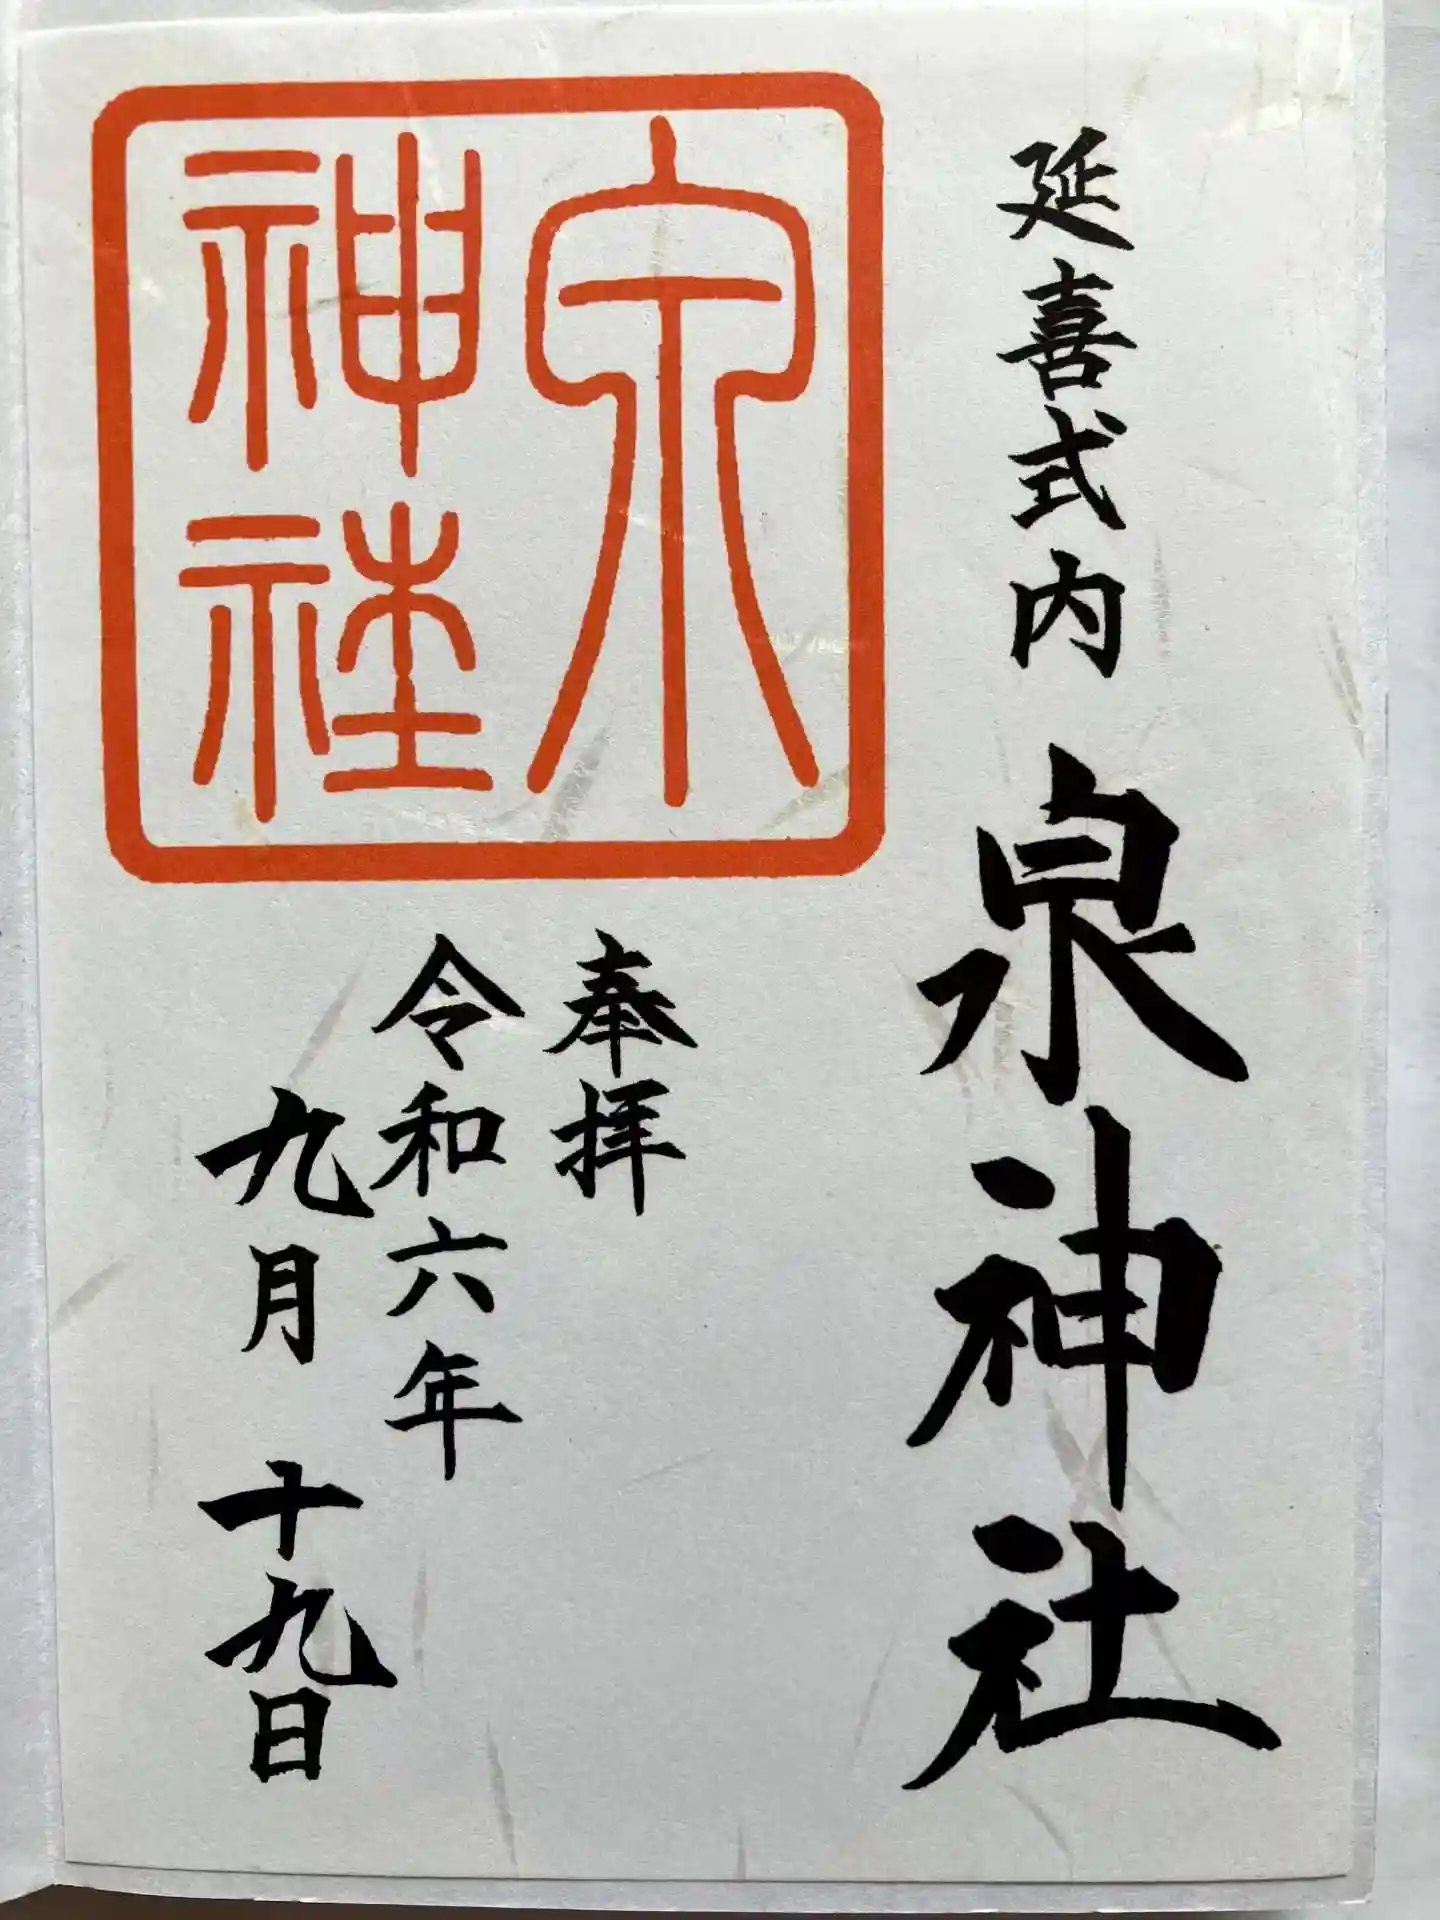 延喜式内 泉神社
泉
神社
奉拝
令和六年
九月十九日